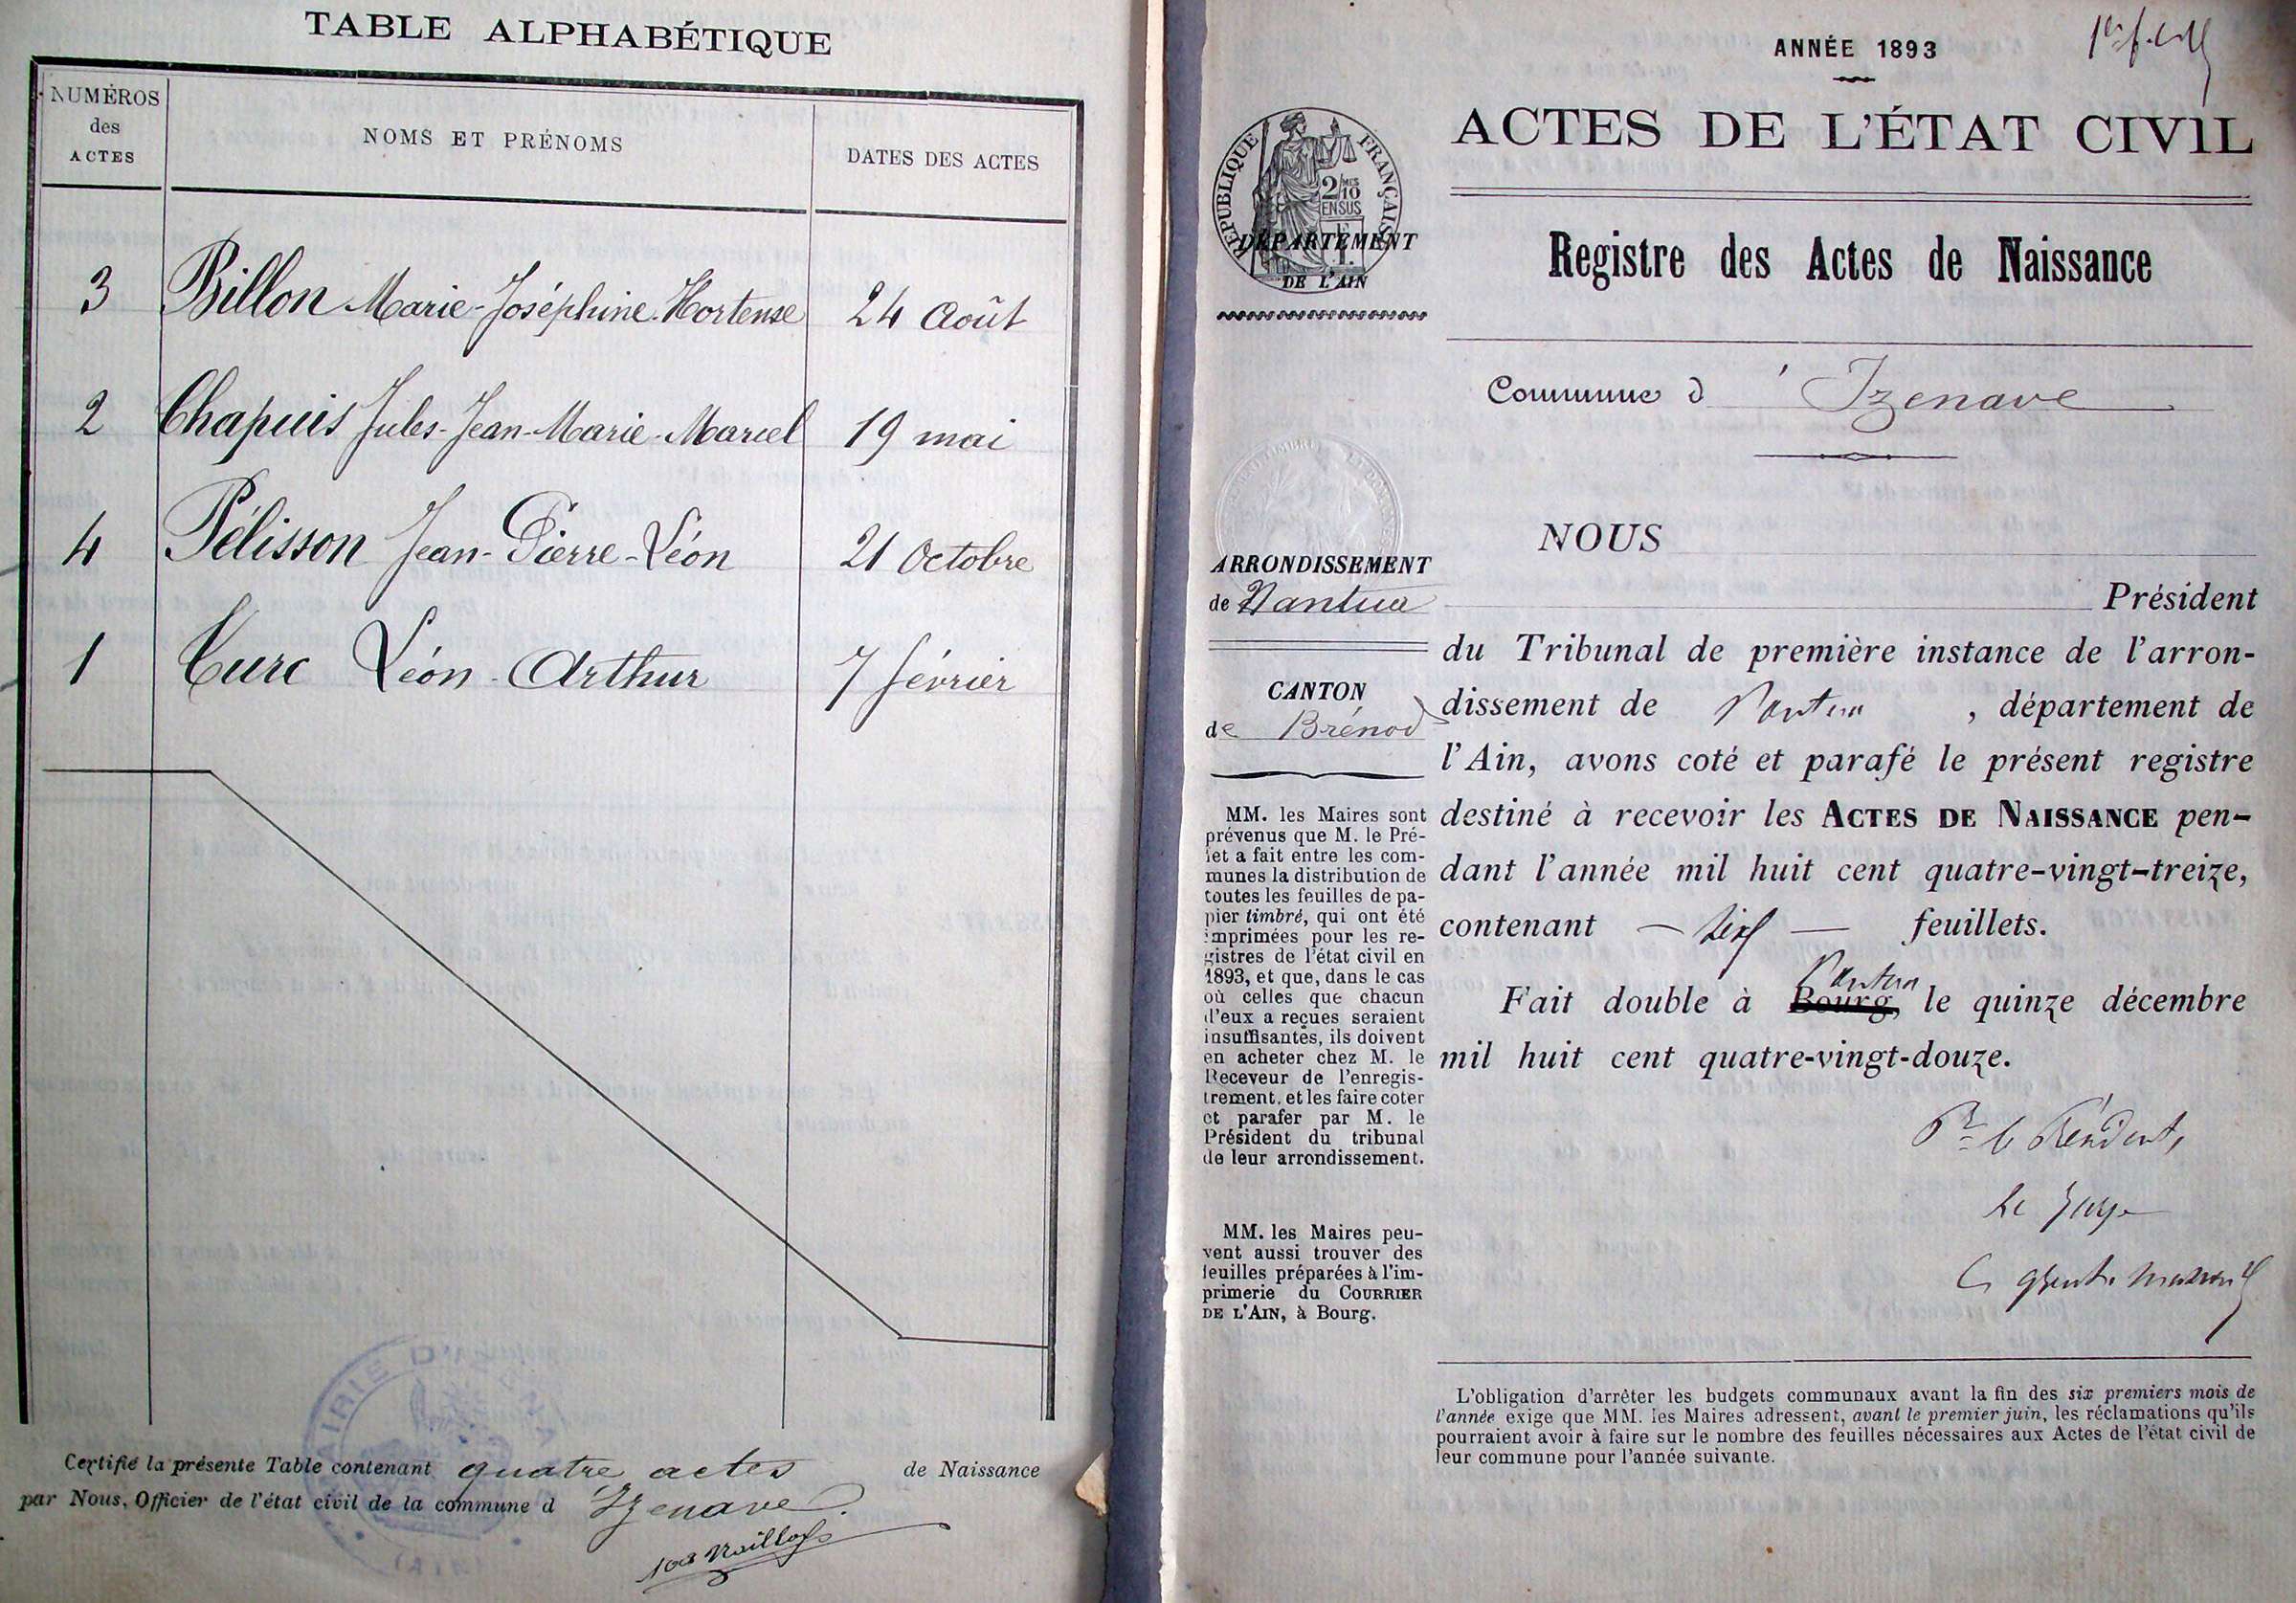 TABLE ALPHABÉTIQUE
NUMÉROS
des
ACTES
NOMS ET PRÉNOMS
DATES DES ACTES
3 Billon Marie-Joséphine-Hortense 24 Août
2 Chapuis Jules-Jean-Marie-Marcel 19 mai
4 Pélisson Jean-Pierre-Léon 21 Octobre
1 Turc Léon-Arthur 7 février
Certifié la présente Table contenant quatre actes de Naissance
par Nous, Officier de l'état civil de la commune d'Izenave.
ANNÉE 1893
ACTES DE L'ÉTAT CIVIL
RÉPUBLIQUE FRANÇAISE
2/10 MES
EN SUS
DÉPARTEMENT
DE L'AIN
Registre des Actes de Naissance
Commune d'Izenave
ARRONDISSEMENT
de Nantua
CANTON
de Brénod
MM. les Maires sont
prévenus que M. le Pré-
fet a fait entre les com-
munes la distribution de
toutes les feuilles de pa-
pier timbré, qui ont été
imprimées pour les re-
gistres de l'état civil en
1893, et que, dans le cas
où celles que chacun
d'eux a reçues seraient
insuffisantes, ils doivent
en acheter chez M. le
Receveur de l'enregis-
trement, et les faire coter
et parafer par M. le
Président du tribunal
de leur arrondissement.
MM. les Maires peu-
vent aussi trouver des
feuilles préparées à l'im-
primerie du COURRIER
DE L'AIN, à Bourg.
NOUS
Président
du Tribunal de première instance de l'arron-
dissement de Nantua, département de
l'Ain, avons coté et parafé le présent registre
destiné à recevoir les ACTES DE NAISSANCE pen-
dant l'année mil huit cent quatre-vingt-treize,
contenant feuillets.
Nantua
Fait double à Bourg, le quinze décembre
mil huit cent quatre-vingt-douze.
Pr le Président,
Le Juge
L'obligation d'arrêter les budgets communaux avant la fin des six premiers mois de
l'année exige que MM. les Maires adressent, avant le premier juin, les réclamations qu'ils
pourraient avoir à faire sur le nombre des feuilles nécessaires aux Actes de l'état civil de
leur commune pour l'année suivante.